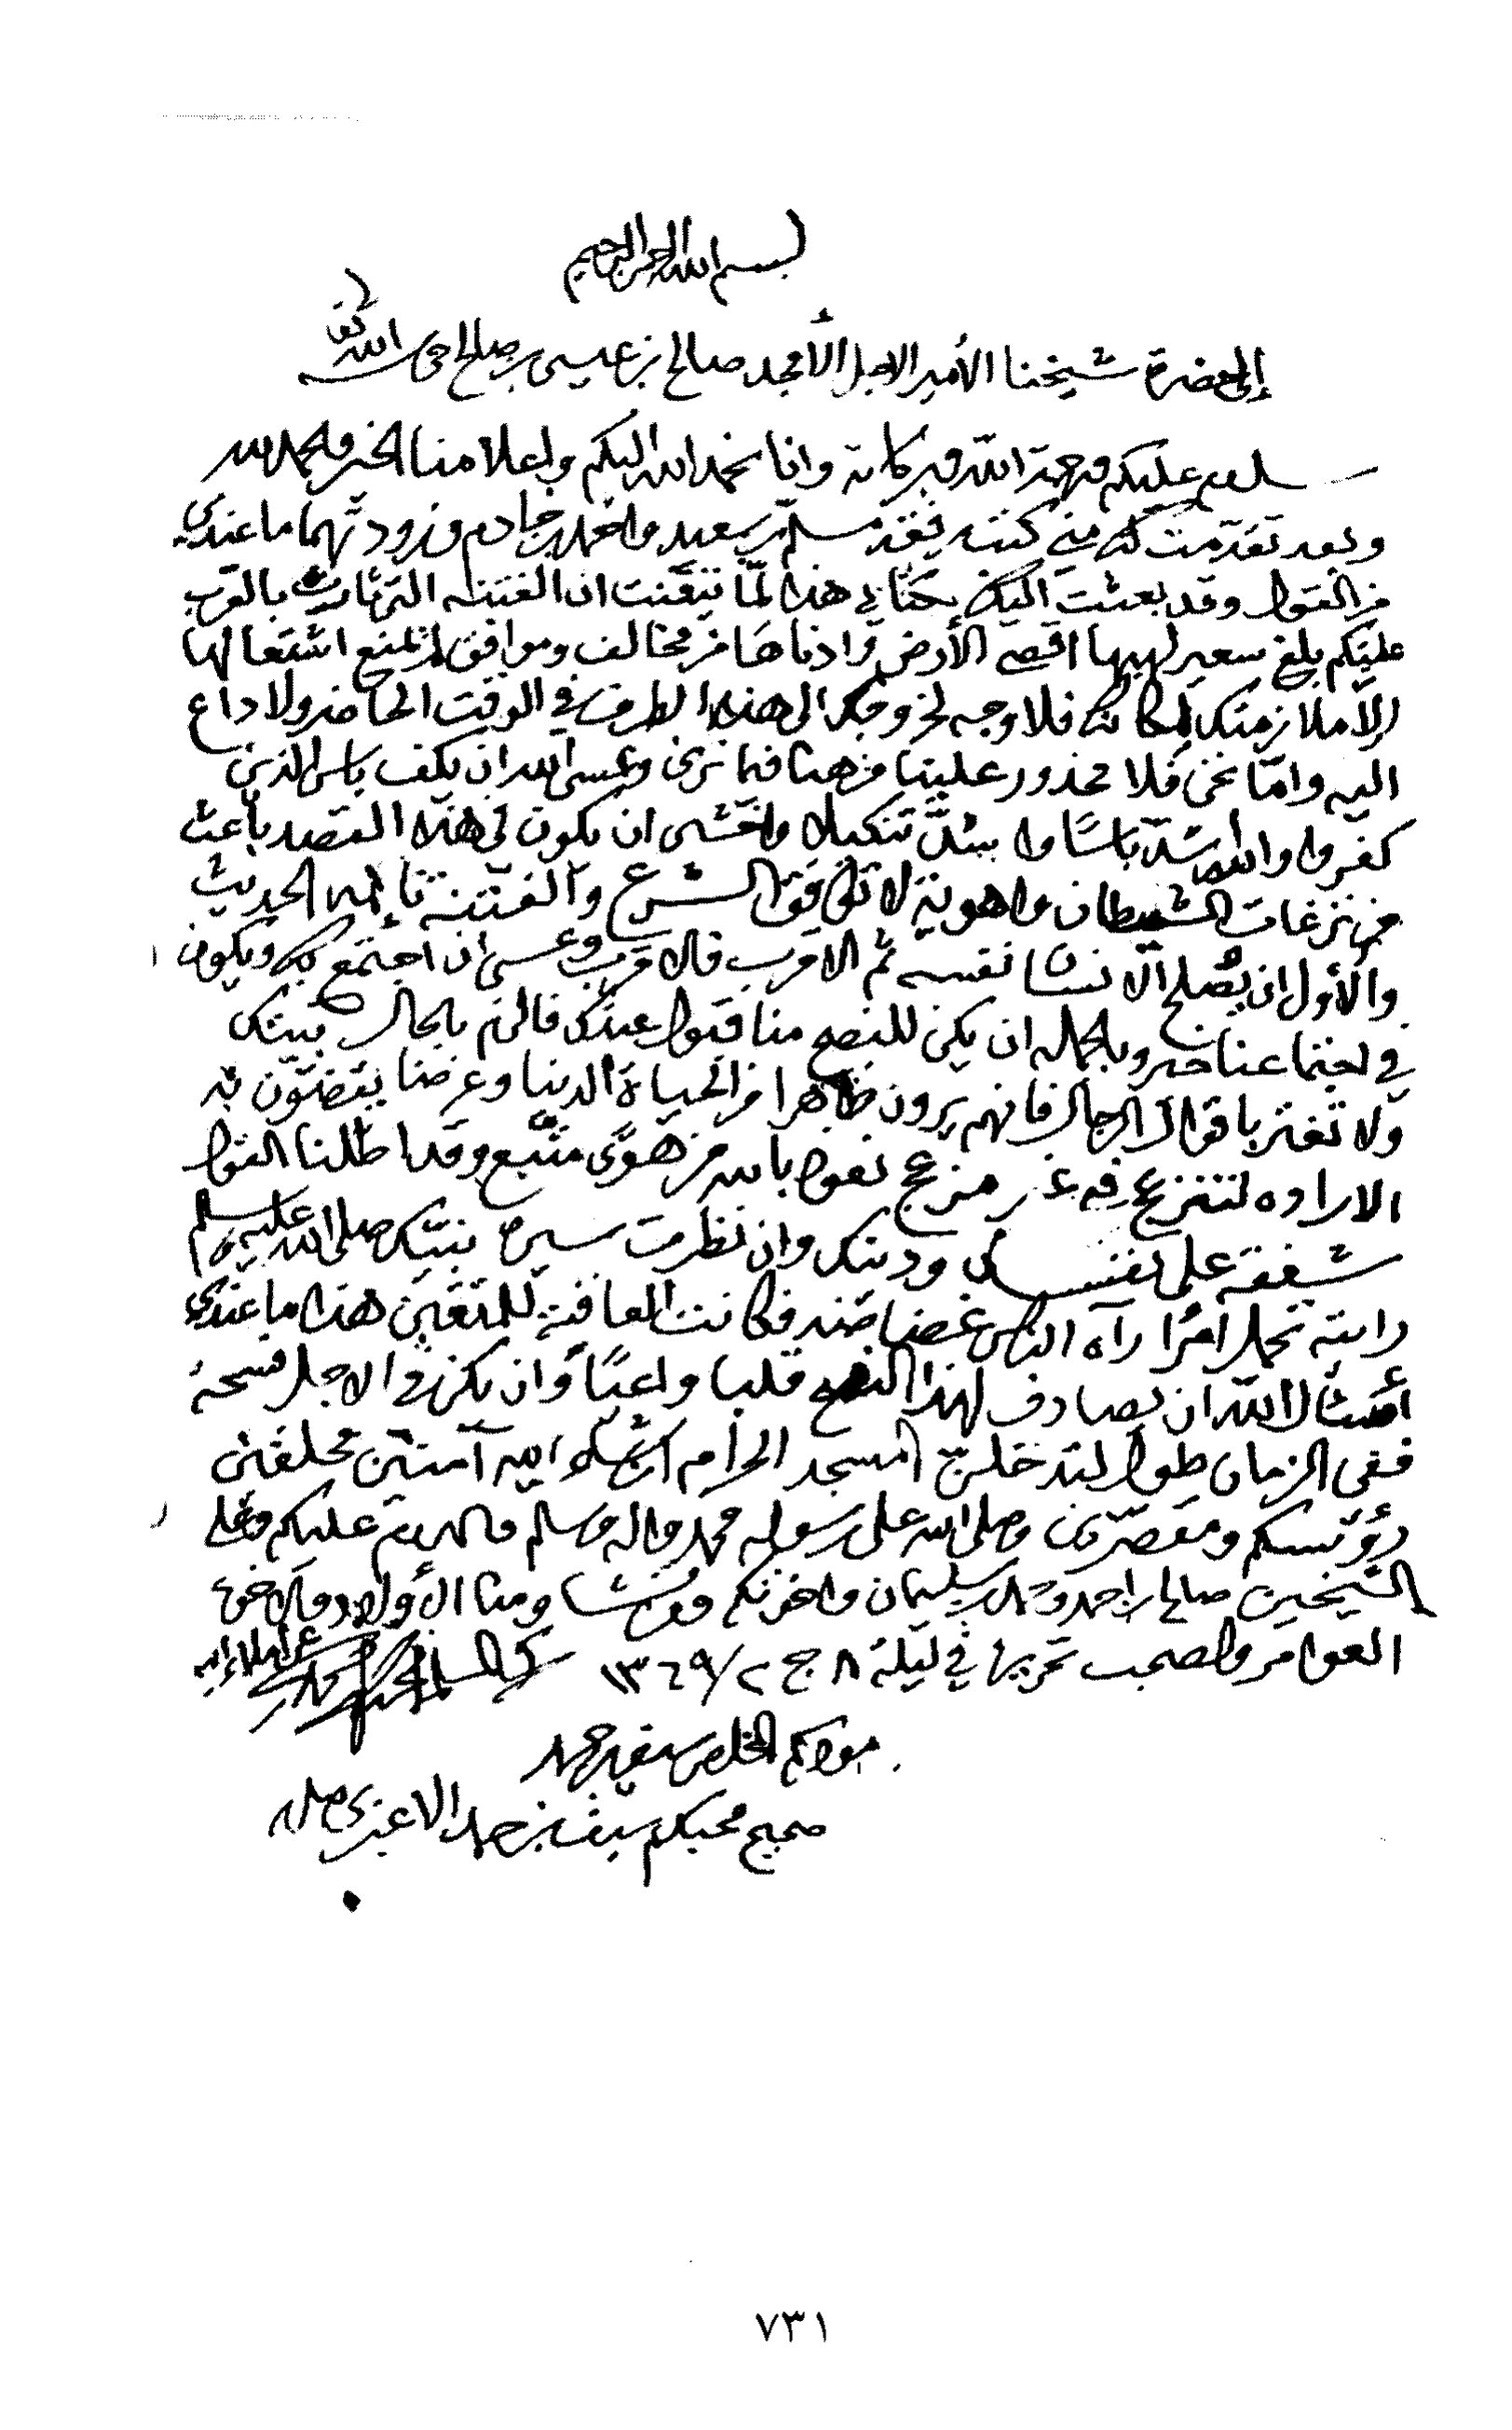 بسم الله الرحمن الرحيم
إلى حضرة شيخنا الأمير الاجل الأمجد صالح بن عيسى بن صالح الله
سلام عليكم ورحمة الله وبركاته وانا نحمد الله اليكم ولعلامنا الخير والحمد لله
وبعد تقدمت لك مني كتب بيد مسلم بن سعيد واحمد بن حامد وزودتهما ما عندي
من القول وقد بعثت اليك بكتابي هذا لمّا تيقنت ان الفتنة التي ثارت بالقرب
عليكم بلغ سعير لهيبها اقصى الأرض وادناها من مخالف وموافق لم يمنع اشتعالها
إلا ملازمتك لمكانك فلا وجه لخروجك الى هذا الطرف في الوقت الحاضر ولا داع
اليه وامّا نحن فلا محذور علينا من هنا فيما نرى وعسى الله ان يكف باس الذين
كفروا والله أشد بأسًا واشدّ تنكيلا واخشى ان يكون في هذا القصد باعث
من نزغات الشيطان واهوية لا توافق الشرع والفتنة نائمة الحديث
والأول ان يصلح الانسان نفسه ثم الاقرب فالاقرب وعسى ان اجتمع بك ويكون
في اجتماعنا خير وبالجملة ان يكن للنصح منا قبول عندك فالزم بالحال بيتك
ولا تغتر باقوال الرجال فانهم يرون ظاهرا من الحياة الدنيا وعرضا يقضون به
الاراده لتنزعج في غير مزعج نعوذ بالله من هوًى متّبع وقد اطلنا القول
شفقة على نفسك ودينك وان نظرت سيرة نبيّك صلى الله عليه وسلم
رايته تحمل أمرًا رآه الناس غضاضة فكانت العاقبة للمتقين هذا ما عندي
أسأل الله ان يصادف لهذا النصح قلبا واعيًا وان يكن في الاجل فسحة
ففي الزمان طول لتدخلن المسجد الحرام ان شاء الله آمنين محلقين
رؤسكم ومقصرين وصلى الله على رسوله محمد واله وسلم والسلام عليكم وعلى
الشيخين صالح بن احمد وحمد بن سليمان واخوتكم ومن شا ومنا الأولاد والاخوة
العوامر والصحب تحريرا في ليلة ٨ ج ٢ / ١٣٦٩ عن املائه
صحيح محبكم سيف بن حمد الاغبري
٧٣١